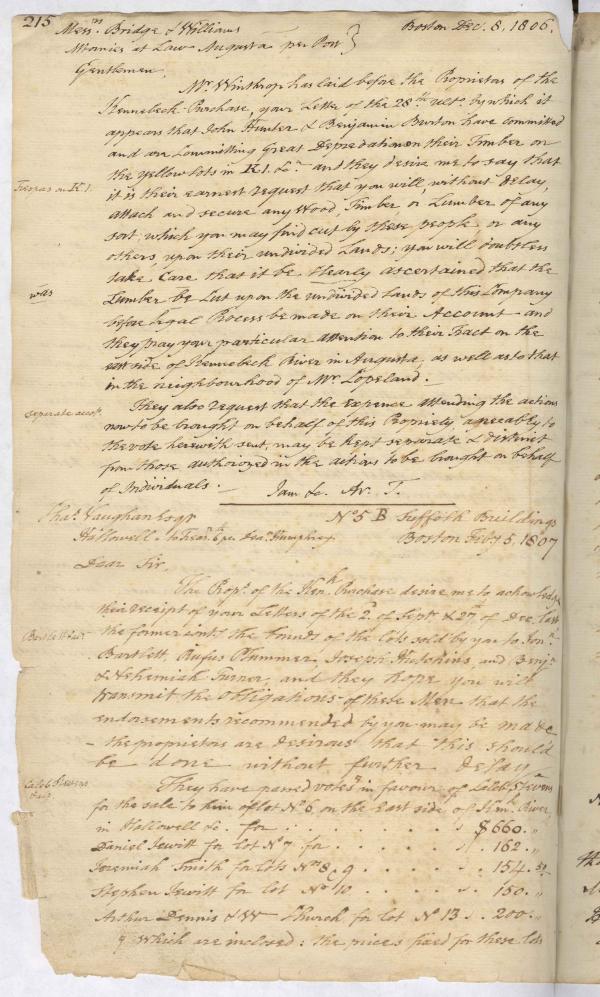 215
Messrs. Bridge & Williams
Boston Dec. 8, 1806.
Attornies at Law Augusta per Post }
Gentlemen,
Mr. Winthrop has laid before the Proprietors of the
Kennebeck Purchase, your Letter of the 28th ult. by which it
appears that John Hunter & Benjamin Burton have committed
and are Committing Great Depredation on their Timber on
the yellow lots in K1. &c. and they desire me to say that
Trespas on K1.
it is their earnest request that you will without Delay,
attach and secure any Wood, Timber or Lumber of any
sort, which you may find cut by these people, or any
others, upon their undivided Lands; you will doubtless
take Care that it be Clearly ascertained that the
was
Lumber be Cut upon the undivided lands of this Company
before Legal Process be made on their Account - and
they pray your particular attention to their Tract on the
east side of Kennebeck River in Augusta, as well as to that
in the neighbourhood of Mr. Copeland.
seperate accots.
They also request that the Expence attending the actions
now to be brought on behalf of this Propriety, agreeably to
the vote herewith sent, may be kept separate & distinct
from those authorized in the actions to be brought on behalf
of Individuals.
I am &c. Ar. T.
Chas. Vaughan Esqr
No 5 B Suffolk Buildings
Hallowell - Humphrey
Boston Feby 5, 1807
Dear Sir,
The Props. of the Kenk. Purchase desire me to acknowledge
their receipt of your Letters of the 2d. of Sept. & 27th of Dec. last
the former the bounds of the Lots sold by you to Jon.
Bartlett &c
Bartlett, Rufus Plummer, Joseph Hutchins, and Benjn.
& Nehemiah Turner, and they hope you will
transmit the Obligations of these Men that the
endorsements recommended by you may be made
- the proprietors are desirous that this should
be done without further delay
Caleb Stevens
They have passed votes in favour of Caleb Stevens
for the sale to him of lot No 6 on the East side of Kenn. River,
in Hallowell &c. for . . . . . . $660. "
Daniel Jewitt for lot No 7 for . . . . . 162. "
Jeremiah Smith for lots Nos 8 & 9 . . . . 154. 50
Stephen Jewitt for lot No 10 . . . . . . 150. "
Arthur Dennis & Wm Church for lot No 13 . . 200. "
Which are inclosed: the prices fixed for these lots